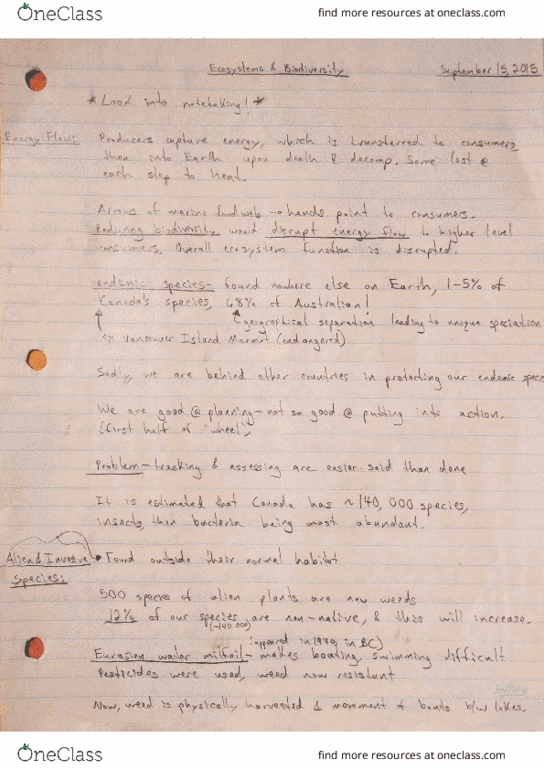 OneClass
find more resources at oneclass.com
Ecosystems & Biodiversity
September 15, 2015
* Look into notetaking! *
Energy Flow:
Producers capture energy, which is transferred to consumers
then into Earth upon death & decomp. Some lost @
each step to heat.
Arrows of marine foodweb → hands point to consumers.
Reducing biodiversity would disrupt energy flow to higher level
consumers. Overall ecosystem function is disrupted.
endemic species - found nowhere else on Earth, 1-5% of
Canada's species, 68% of Australian!
geographical separation leading to unique speciation
ex Vancouver Island Marmot (endangered)
Sadly, we are behind other countries in protecting our endemic species
We are good @ planning - not so good @ putting into action.
(first half of "wheel")
Problem - tracking & assessing are easier said than done
It is estimated that Canada has ~140,000 species,
insects, then bacteria being most abundant.
Alien & Invasive
Species:
• Found outside their normal habitat
500 species of alien plants are now weeds
12% of our species are non-native, & this will increase.
(~140 000)
(appeared in 1970s in BC)
Eurasian water milfoil - makes boating, swimming difficult
Pesticides were used, weed now resistant
Now, weed is physically harvested & movement of boats b/w lakes.
OneClass
find more resources at oneclass.com